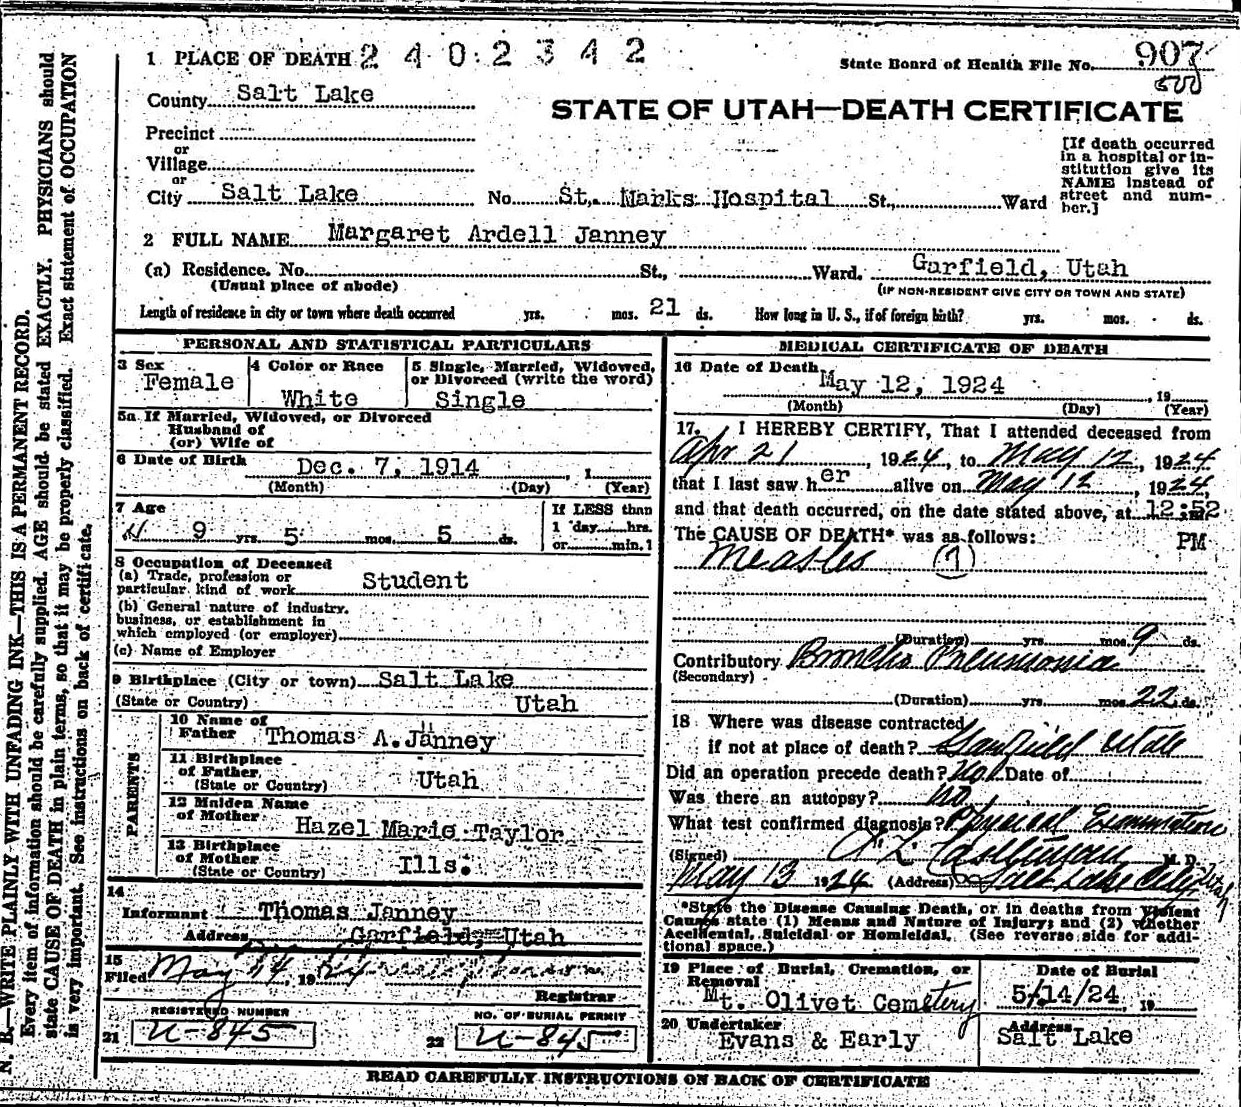 N. B.—WRITE PLAINLY WITH UNFADING INK—THIS IS A PERMANENT RECORD.
Every item of information should be carefully supplied. AGE should be stated EXACTLY. PHYSICIANS should
state CAUSE OF DEATH in plain terms, so that it may be properly classified. Exact statement of OCCUPATION
is very important. See instructions on back of certificate.
1 PLACE OF DEATH 2 4 0 2 3 4 2
State Board of Health File No. 907
500
County Salt Lake
STATE OF UTAH—DEATH CERTIFICATE
Precinct
or
Village
or
City Salt Lake No. St. Marks Hospital St., Ward
[If death occurred
in a hospital or in-
stitution give its
NAME instead of
street and num-
ber.]
2 FULL NAME Margaret Ardell Janney
(a) Residence. No. St., Ward. Garfield, Utah
(Usual place of abode) (IF NON-RESIDENT GIVE CITY OR TOWN AND STATE)
Length of residence in city or town where death occurred yrs. mos. 21 ds. How long in U. S., if of foreign birth? yrs. mos. ds.
PERSONAL AND STATISTICAL PARTICULARS
3 Sex Female
4 Color or Race White
5 Single, Married, Widowed,
or Divorced (write the word)
Single
5a If Married, Widowed, or Divorced
Husband of
(or) Wife of
6 Date of Birth Dec. 7, 1914 , 1
(Month) (Day) (Year)
7 Age 9 yrs. 5 mos. 5 ds.
If LESS than
1 day hrs.
or min. 1
8 Occupation of Deceased
(a) Trade, profession or
particular kind of work Student
(b) General nature of industry,
business, or establishment in
which employed (or employer)
(c) Name of Employer
9 Birthplace (City or town) Salt Lake
(State or Country) Utah
PARENTS
10 Name of
Father Thomas A. Janney
11 Birthplace
of Father
(State or Country) Utah
12 Maiden Name
of Mother Hazel Marie Taylor
13 Birthplace
of Mother
(State or Country) Ills.
14
Informant Thomas Janney
Address Garfield, Utah
15
Filed May 14, 19
Registrar
REGISTERED NUMBER
21 U-845
NO. OF BURIAL PERMIT
22 U-845
MEDICAL CERTIFICATE OF DEATH
16 Date of Death May 12, 1924 , 19
(Month) (Day) (Year)
17. I HEREBY CERTIFY, That I attended deceased from
Apr 21, 1924, to May 12, 1924
that I last saw her alive on May 12, 1924,
and that death occurred, on the date stated above, at 12:52 m.
PM
The CAUSE OF DEATH* was as follows:
Measles (7)
(Duration) yrs. mos. 9 ds.
Contributory Broncho Pneumonia
(Secondary)
(Duration) yrs. mos. 22 ds.
18 Where was disease contracted
if not at place of death? Garfield Utah
Did an operation precede death? No. Date of
Was there an autopsy? No.
What test confirmed diagnosis? Physical Examination
(Signed) M. D.
May 13 1924 (Address) Salt Lake City Utah
*State the Disease Causing Death, or in deaths from Violent
Causes state (1) Means and Nature of Injury; and (2) whether
Accidental, Suicidal or Homicidal. (See reverse side for addi-
tional space.)
19 Place of Burial, Cremation, or
Removal
Mt. Olivet Cemetery
Date of Burial
5/14/24, 19
20 Undertaker
Evans & Early
Address
Salt Lake
READ CAREFULLY INSTRUCTIONS ON BACK OF CERTIFICATE